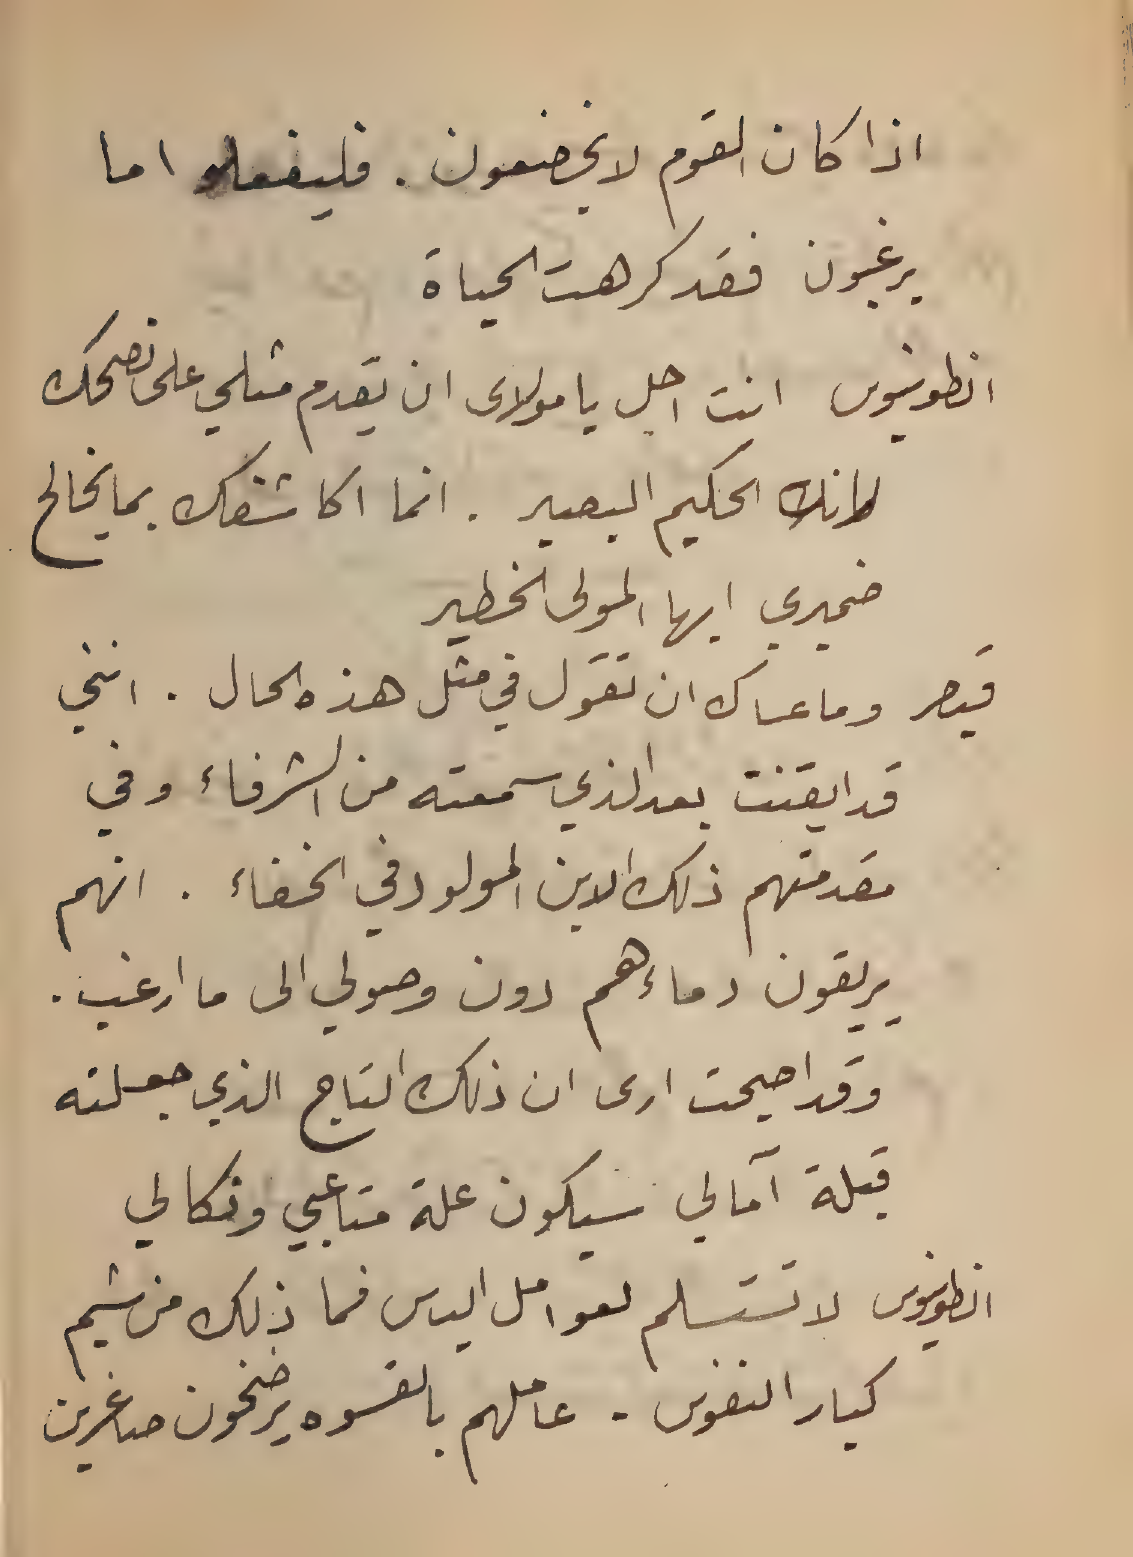 اذا كان القوم لا يخضعون . فليفعلو اما
يرغبون فقد كرهت الحياة
انطونيوس انت اجل يا مولاى ان يقدم مثلي على نصحك
لانك الحكيم البصير . انما اكاشفك بما يخالج
ضميري ايها المولى الخطير
قيصر وما عساك ان تقول في مثل هذه الحال . انني
قد ايقنت بعد الذي سمعته من الشرفاء وفي
مقدمتهم ذلك الابن المولود في الخفاء . انهم
يريقون دماءهم دون وصولي الى ما ارغب .
وقد اصبحت ارى ان ذلك التاج الذي جعلته
قبلة آمالي سيكون علة متاعبي ونكالي
انطونيوس لا تستسلم لعوامل اليأس فما ذلك من شيم
كبار النفوس . عاملهم بالقسوه يرضخون صاغرين